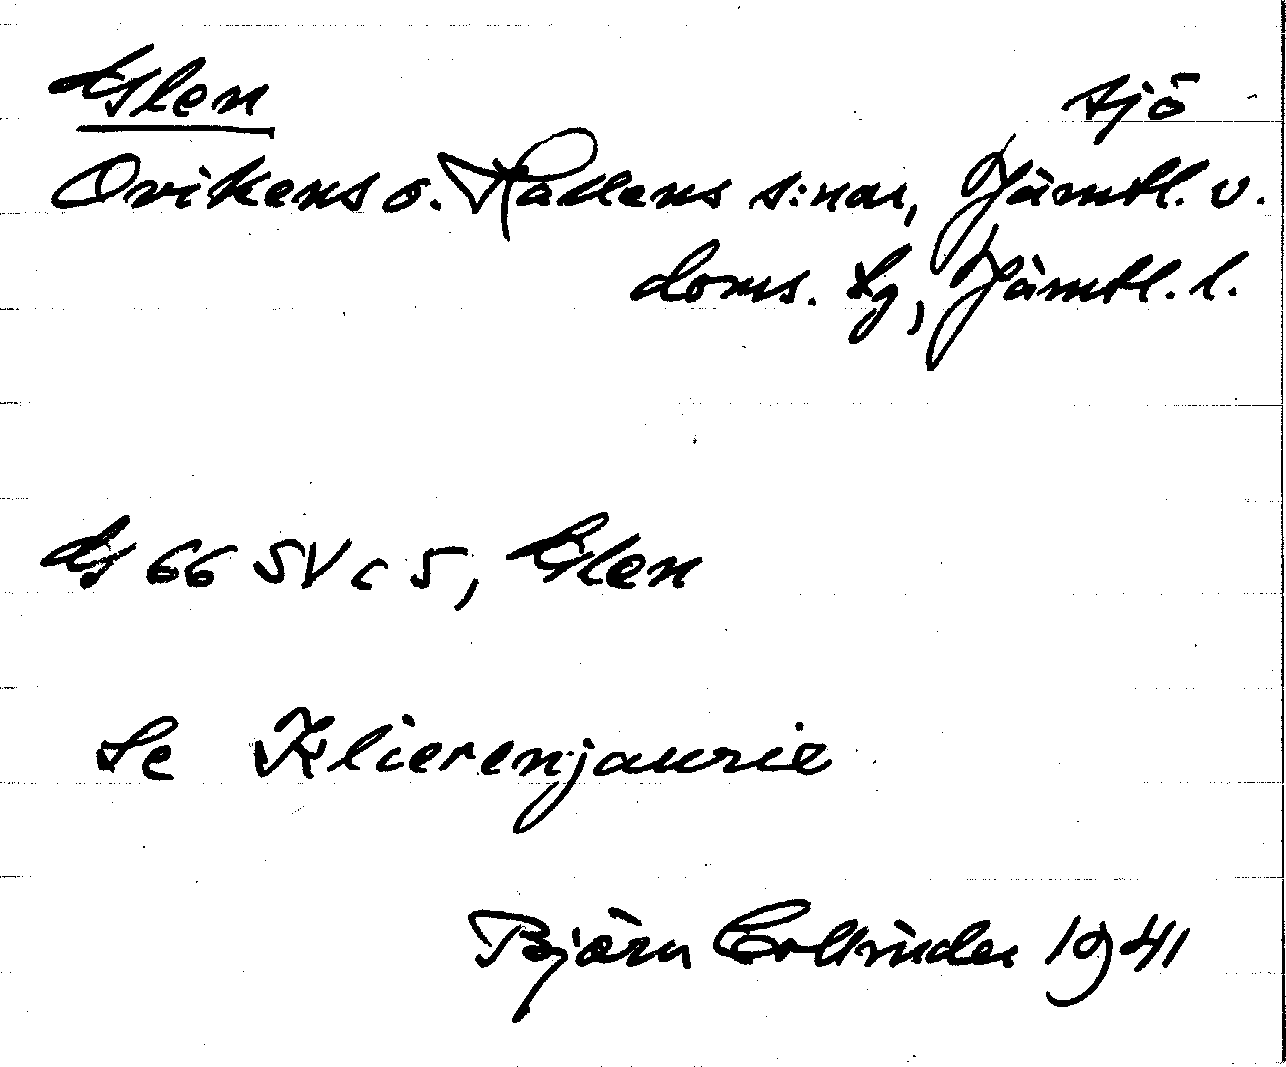 Glen sjö
Ovikens o. Hallens s:nar, Jämtl. v.
doms. lg, Jämtl. l.
GS 66 SV c 5, Glen
Se Klierenjaurie
Björn Collinder 1941